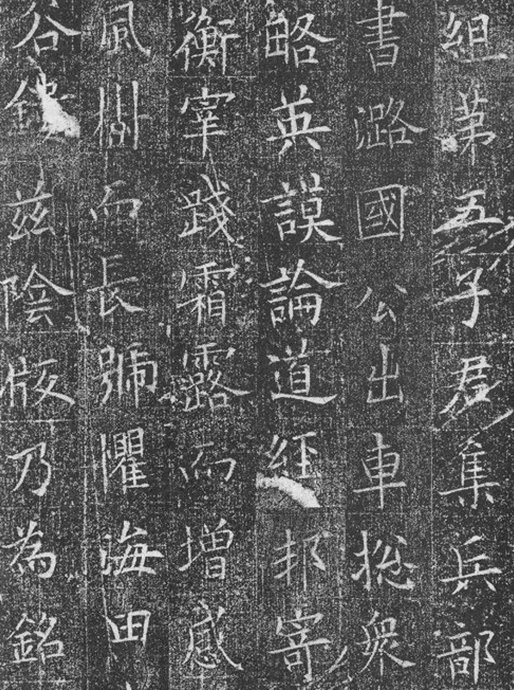 組第五子君集兵部
書潞國公出車揔衆
略英謨論道經邦寄
衡宰踐霜露而增感
風樹而長號懼海田
谷鏤茲陰版乃為銘